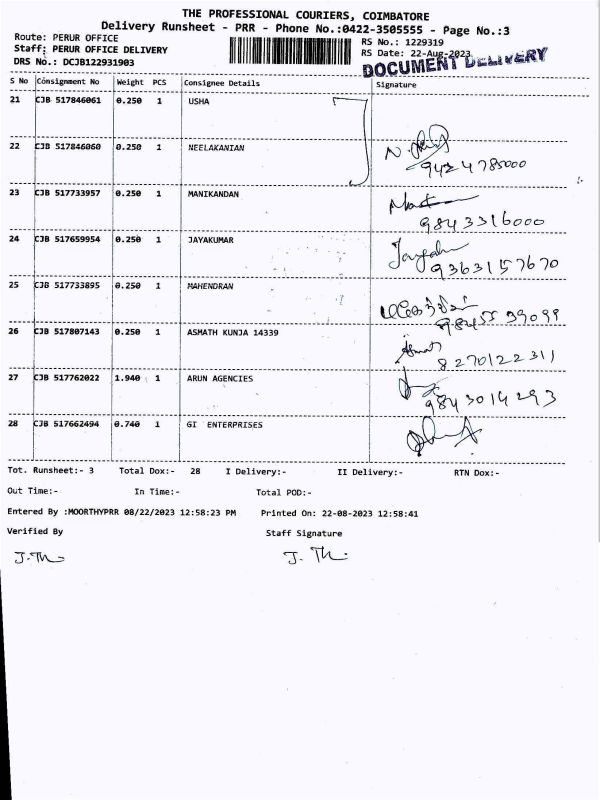 THE PROFESSIONAL COURIERS, COIMBATORE
Delivery Runsheet - PRR - Phone No.:0422-3505555 - Page No.:3
Route: PERUR OFFICE
RS No.: 1229319
Staff: PERUR OFFICE DELIVERY
RS Date: 22-Aug-2023
DRS No.: DCJB122931903
DOCUMENT DELIVERY
S No Consignment No Weight PCS Consignee Details Signature
21 CJB 517846061 0.250 1 USHA
22 CJB 517846060 0.250 1 NEELAKANIAN
9424785000
23 CJB 517733957 0.250 1 MANIKANDAN
9843316000
24 CJB 517659954 0.250 1 JAYAKUMAR
9363157670
25 CJB 517733895 0.250 1 MAHENDRAN
26 CJB 517807143 0.250 1 ASMATH KUNJA 14339
8270122311
27 CJB 517762022 1.940 1 ARUN AGENCIES
9843014293
28 CJB 517662494 0.740 1 GI ENTERPRISES
Tot. Runsheet:- 3 Total Dox:- 28 I Delivery:- II Delivery:- RTN Dox:-
Out Time:- In Time:- Total POD:-
Entered By :MOORTHYPRR 08/22/2023 12:58:23 PM Printed On: 22-08-2023 12:58:41
Verified By Staff Signature